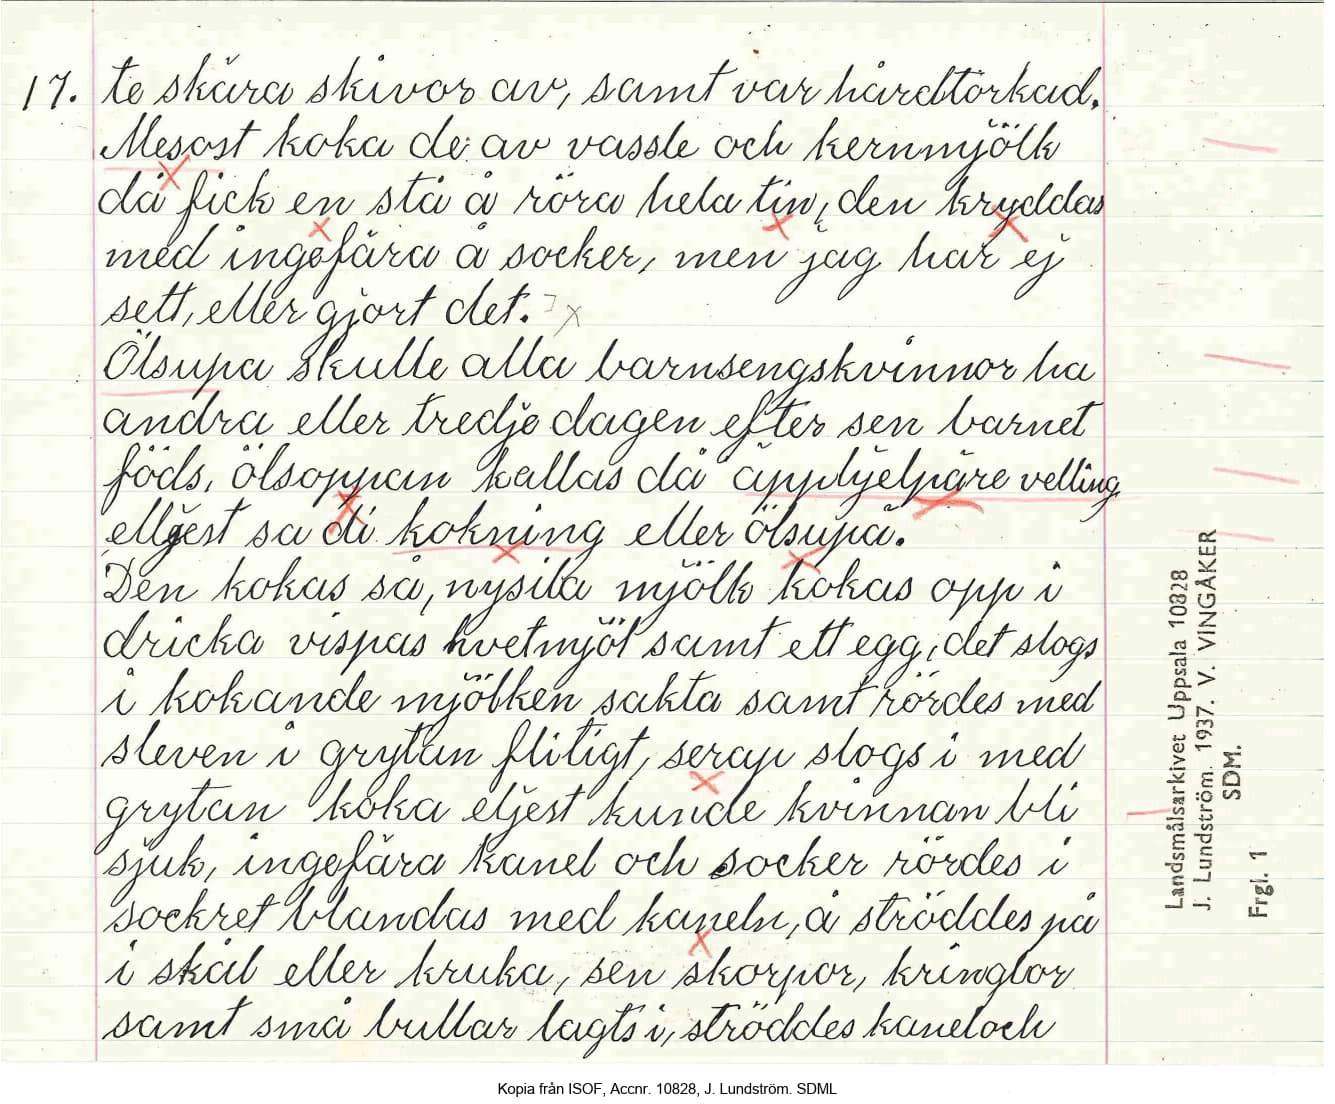 17. te skära skivor av, samt var hårdtorkad.
Mesost koka de av vassle och kernmjölk
då fick en stå å röra hela tin, den kryddas
med ingefära å socker, men jag har ej
sett, eller gjort det.
Ölsupa skulle alla barnsengskvinnor ha
andra eller tredje dagen efter sen barnet
föds, ölsoppan kallas då äpplyelpäre velling
elljest sa di kokning eller ölsupa.
Den kokas så, nysila mjölk kokas opp i
dricka vispas hvetmjöl samt ett egg, det slogs
i kokande mjölken sakta samt rördes med
sleven i grytan flitigt, serap slogs i med
grytan koka eljest kunde kvinnan bli
sjuk, ingefära kanel och socker rördes i
sockret blandas med kaneln, å ströddes på
i skål eller kruka, sen skorpor, kringlor
samt små bullar lagts i, ströddes kanel och
Landsmålsarkivet Uppsala 10828
J. Lundström. 1937. V. VINGÅKER
SDM.
Frgl. 1
Kopia från ISOF, Accnr. 10828, J. Lundström. SDML